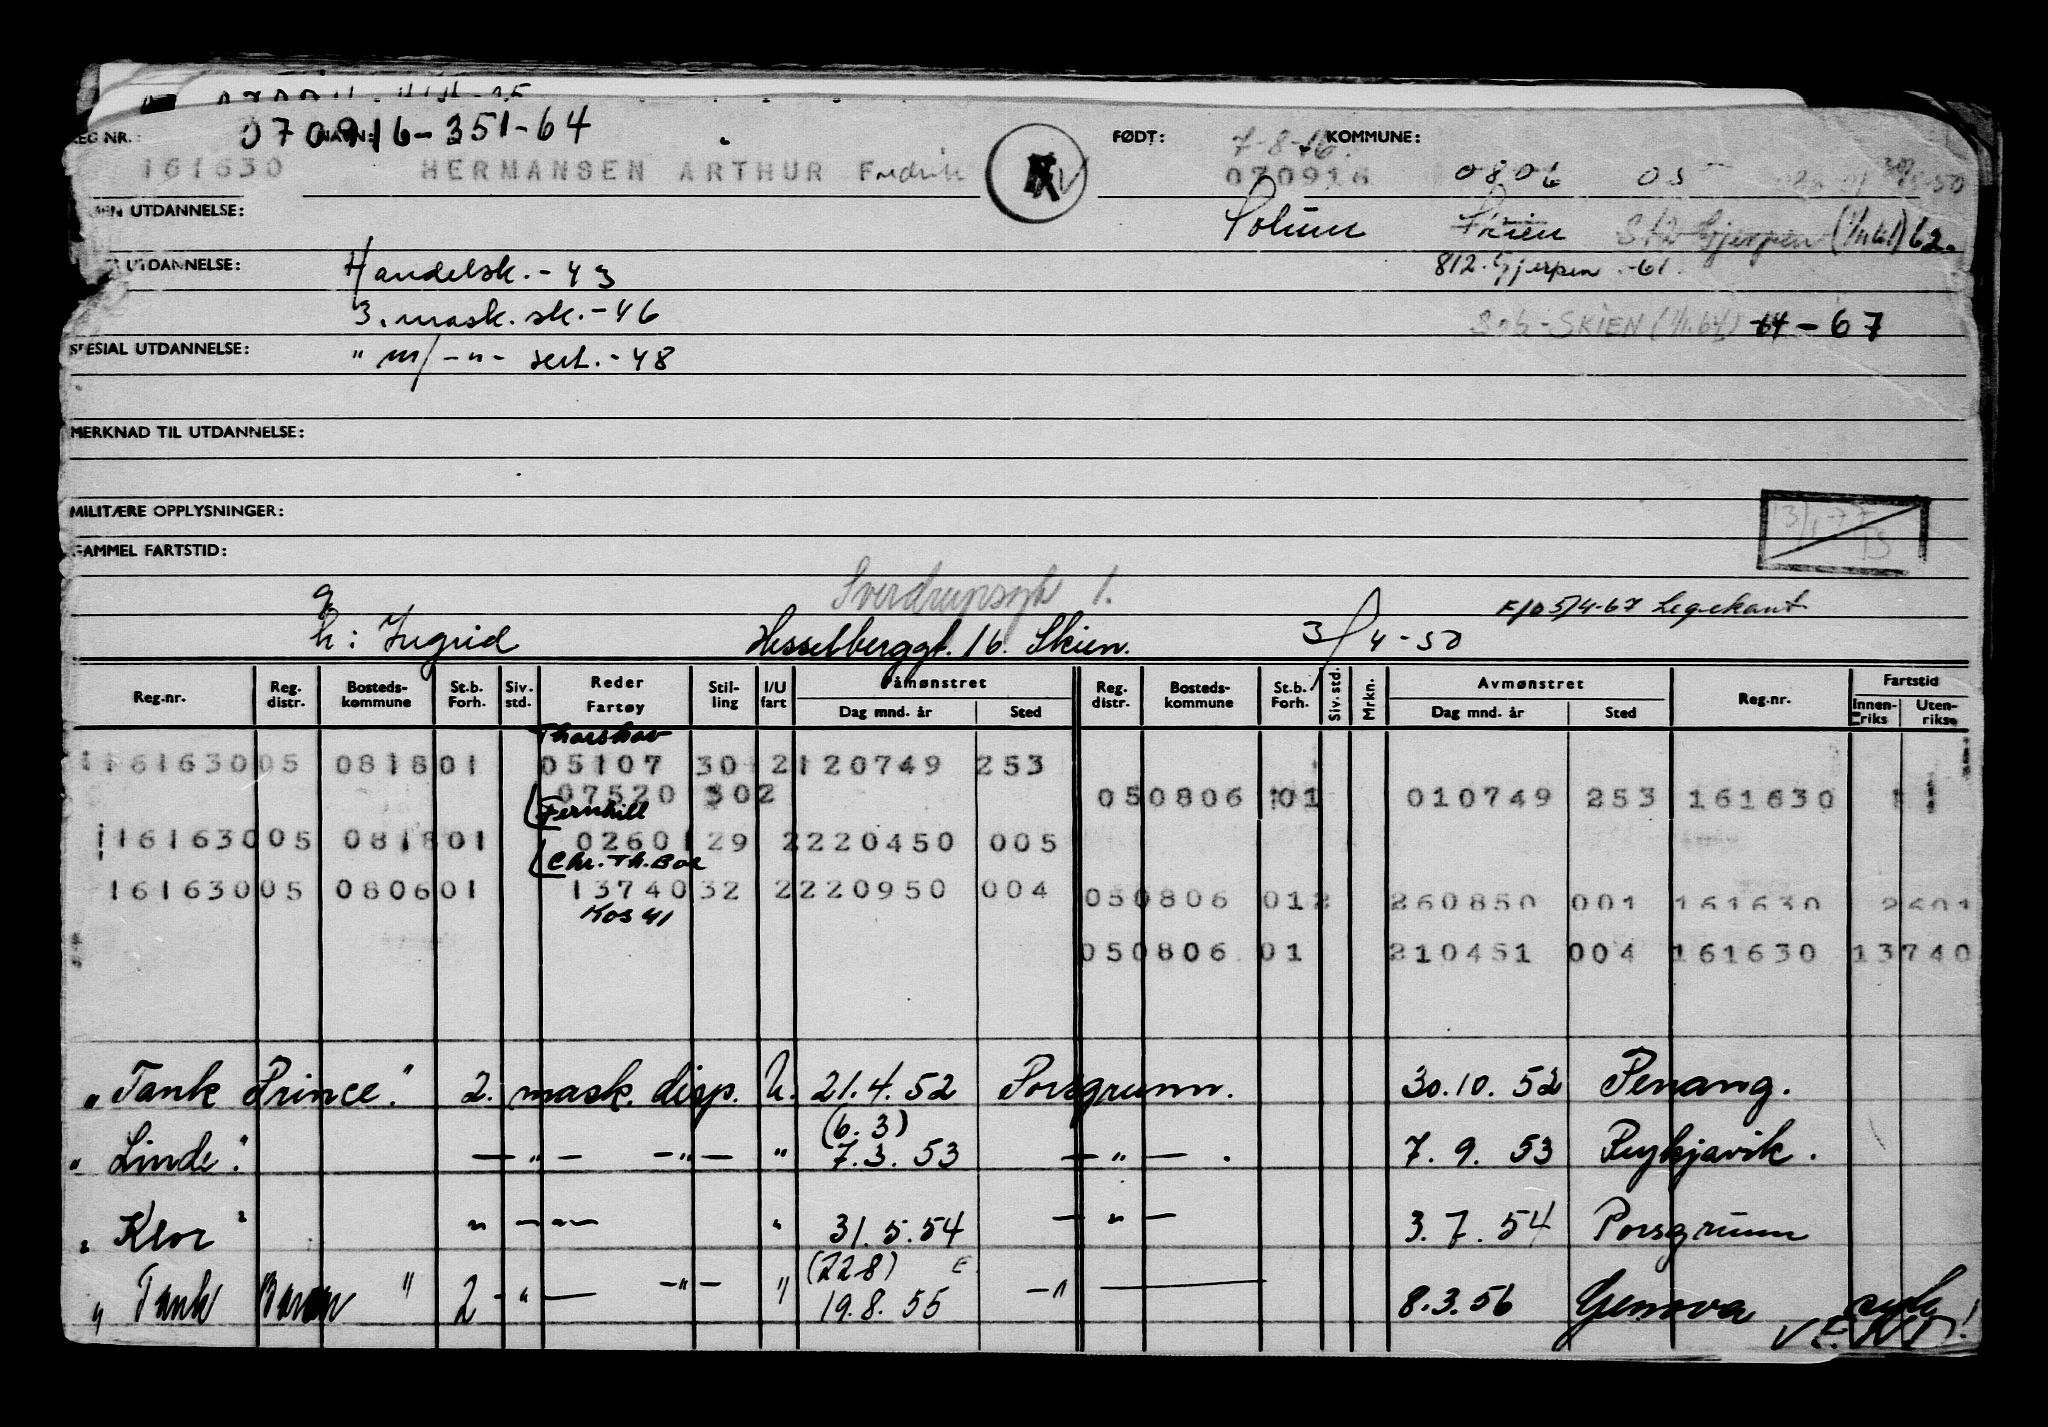 070916-351-64
REG NR.: NAVN: FØDT: KOMMUNE:
7-8-16.
161630 HERMANSEN ARTHUR Fredrik V 070916 0806 05
ALMEN UTDANNELSE: Solum Skien 812 Gjerpen (1/1 61) 62.
UTDANNELSE: Handelsk. - 43 812. Gjerpen -61.
3. mask. sk. - 46 806 - SKIEN (1/1.64) 64 - 67
SPESIAL UTDANNELSE: " m/ - " - sert. - 48
MERKNAD TIL UTDANNELSE:
MILITÆRE OPPLYSNINGER:
GAMMEL FARTSTID:
Sverdrupsgt 1.
F/O 5/4-67 Legekant
g
h: Ingrid Hesselberggt. 16. Skien. 3/4-50
Reg.nr. Reg. distr. Bosteds- kommune St.b. Forh. Siv. std. Reder Fartøy Stil- ling I/U fart Påmønstret Dag mnd. år Sted Reg. distr. Bosteds- kommune St.b. Forh. Siv. std. Mrkn. Avmønstret Dag mnd. år Sted Reg.nr. Fartstid Innen- riks Uten- riks
Thorshov
161630 05 0818 01 05107 30 2 120749 253
07520 302 05 0806 01 010749 253 161630
Fernhill
161630 05 0818 01 02601 29 2 220450 005
Chr. Th. Boe
161630 05 0806 01 13740 32 2 220950 004 05 0806 012 260850 001 161630 2601
Kos 41
05 0806 01 210451 004 161630 13740
"Tank Prince". 2. mask. disp. U. 21.4.52 Porsgrunn. 30.10.52 Penang.
(6.3)
"Linde". — " — — " — " 7.3.53 — " — . 7.9.53 Reykjavik.
"Klor" " — " — " 31.5.54 — " — 3.7.54 Porsgrunn
(22 8) E
"Tank Baron" 2 - " — — " — " 19.8.55 — " — 8.3.56 Genova syk
VEND!